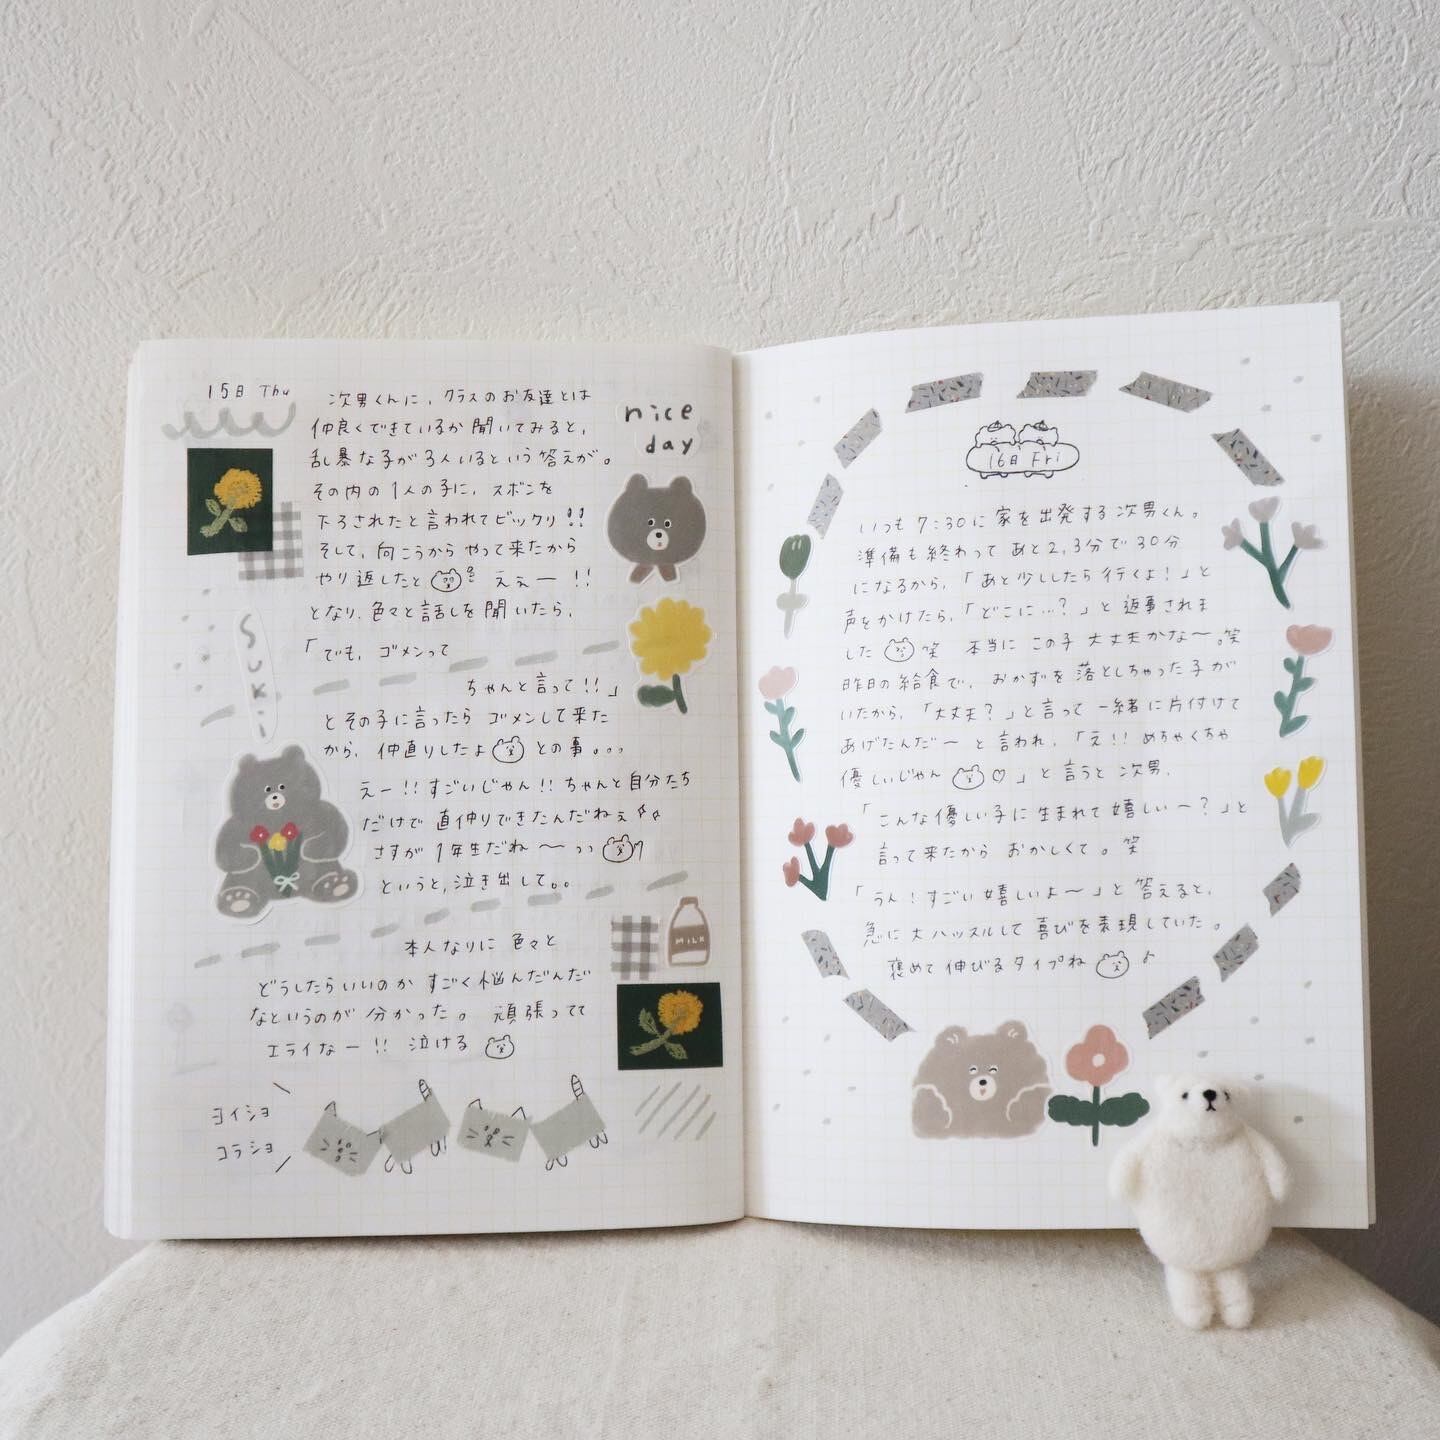 15日 Thu
次男くんに、クラスのお友達とは
仲良くできているか聞いてみると、
乱暴な子が3人いるという答えが。
その内の1人の子に、ズボンを
下ろされたと言われてビックリ!!
そして、向こうからやって来たから
やり返したと ええー!!
となり、色々と話しを聞いたら、
「でも、ゴメンって
ちゃんと言って!!」
とその子に言ったら ゴメンして来た
から、仲直りしたよ との事。。。
えー!!すごいじゃん!!ちゃんと自分たち
だけで 直仲りできたんだねぇ
さすが1年生だね〜
というと、泣き出して。。
本人なりに 色々と
どうしたらいいのか すごく悩んだんだ
なというのが 分かった。 頑張ってて
エライなー!! 泣ける
ヨイショ
コラショ
nice
day
Suki
MILK
16日 Fri
いつも 7:30に 家を出発する次男くん。
準備も終わって あと2,3分で 30分
になるから、「あと少ししたら行くよ!」と
声をかけたら、「どこに…?」と 返事されま
した 笑 本当に この子 大丈夫かな〜。笑
昨日の給食で、おかずを落としちゃった子が
いたから、「大丈夫?」と言って 一緒に片付けて
あげたんだ〜 と言われ、「え!! めちゃくちゃ
優しいじゃん ♡」と言うと 次男、
「こんな優しい子に生まれて嬉しい〜?」と
言って来たから おかしくて。笑
「うん!すごい嬉しいよ〜」と答えると、
急に大ハッスルして 喜びを表現していた。
褒めて伸びるタイプね ♪